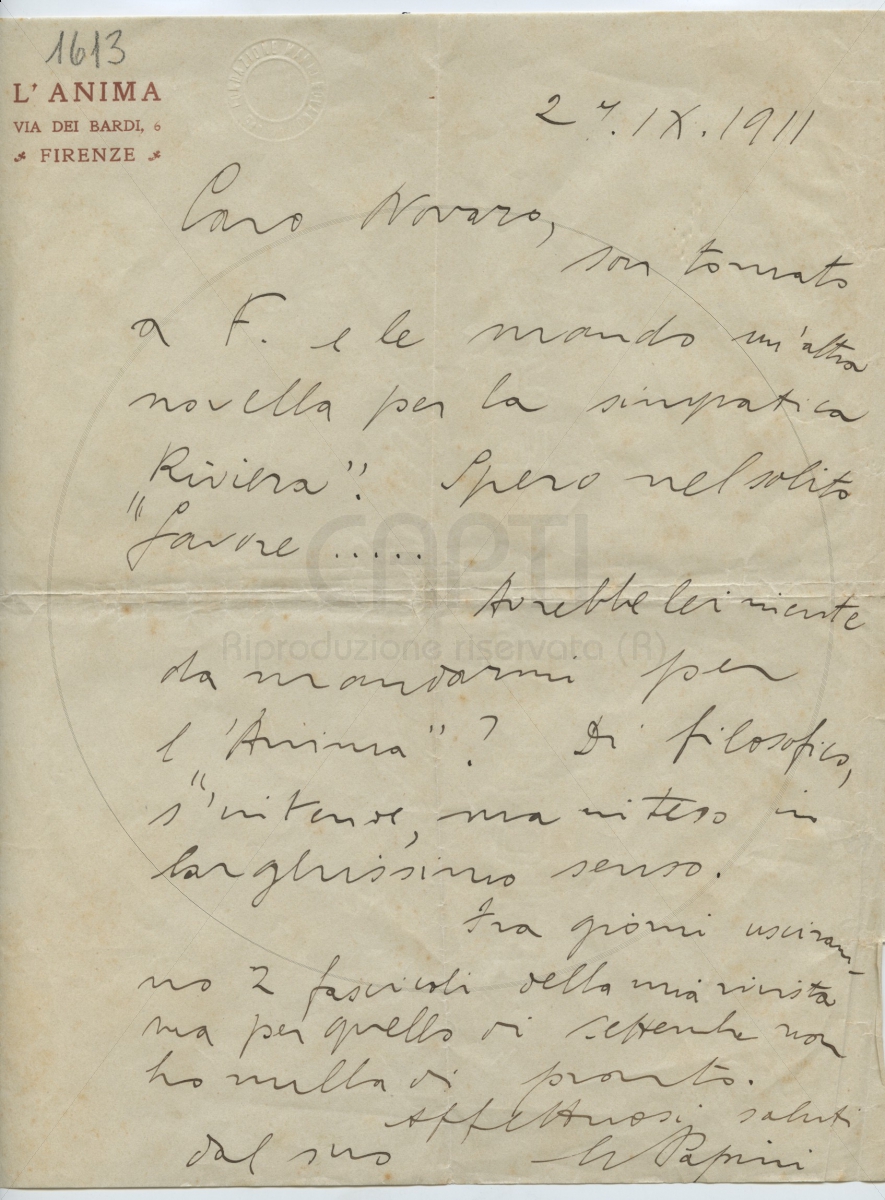 1613
L' ANIMA
VIA DEI BARDI, 6
FIRENZE
27. IX. 1911
Caro Novaro,
son tornato
a F. e le mando un'altra
novella per la simpatica
„Riviera". Spero nel solito
favore .....
Avrebbe lei niente
da mandarmi per
l'„Anima"? Di filosofico,
s'intende, ma inteso in
larghissimo senso.
Fra giorni usciran-
no 2 fascicoli della mia rivista
ma per quello di settembre non
ho nulla di pronto.
Affettuosi saluti
dal suo G Papini
CAPTI
Riproduzione riservata (R)